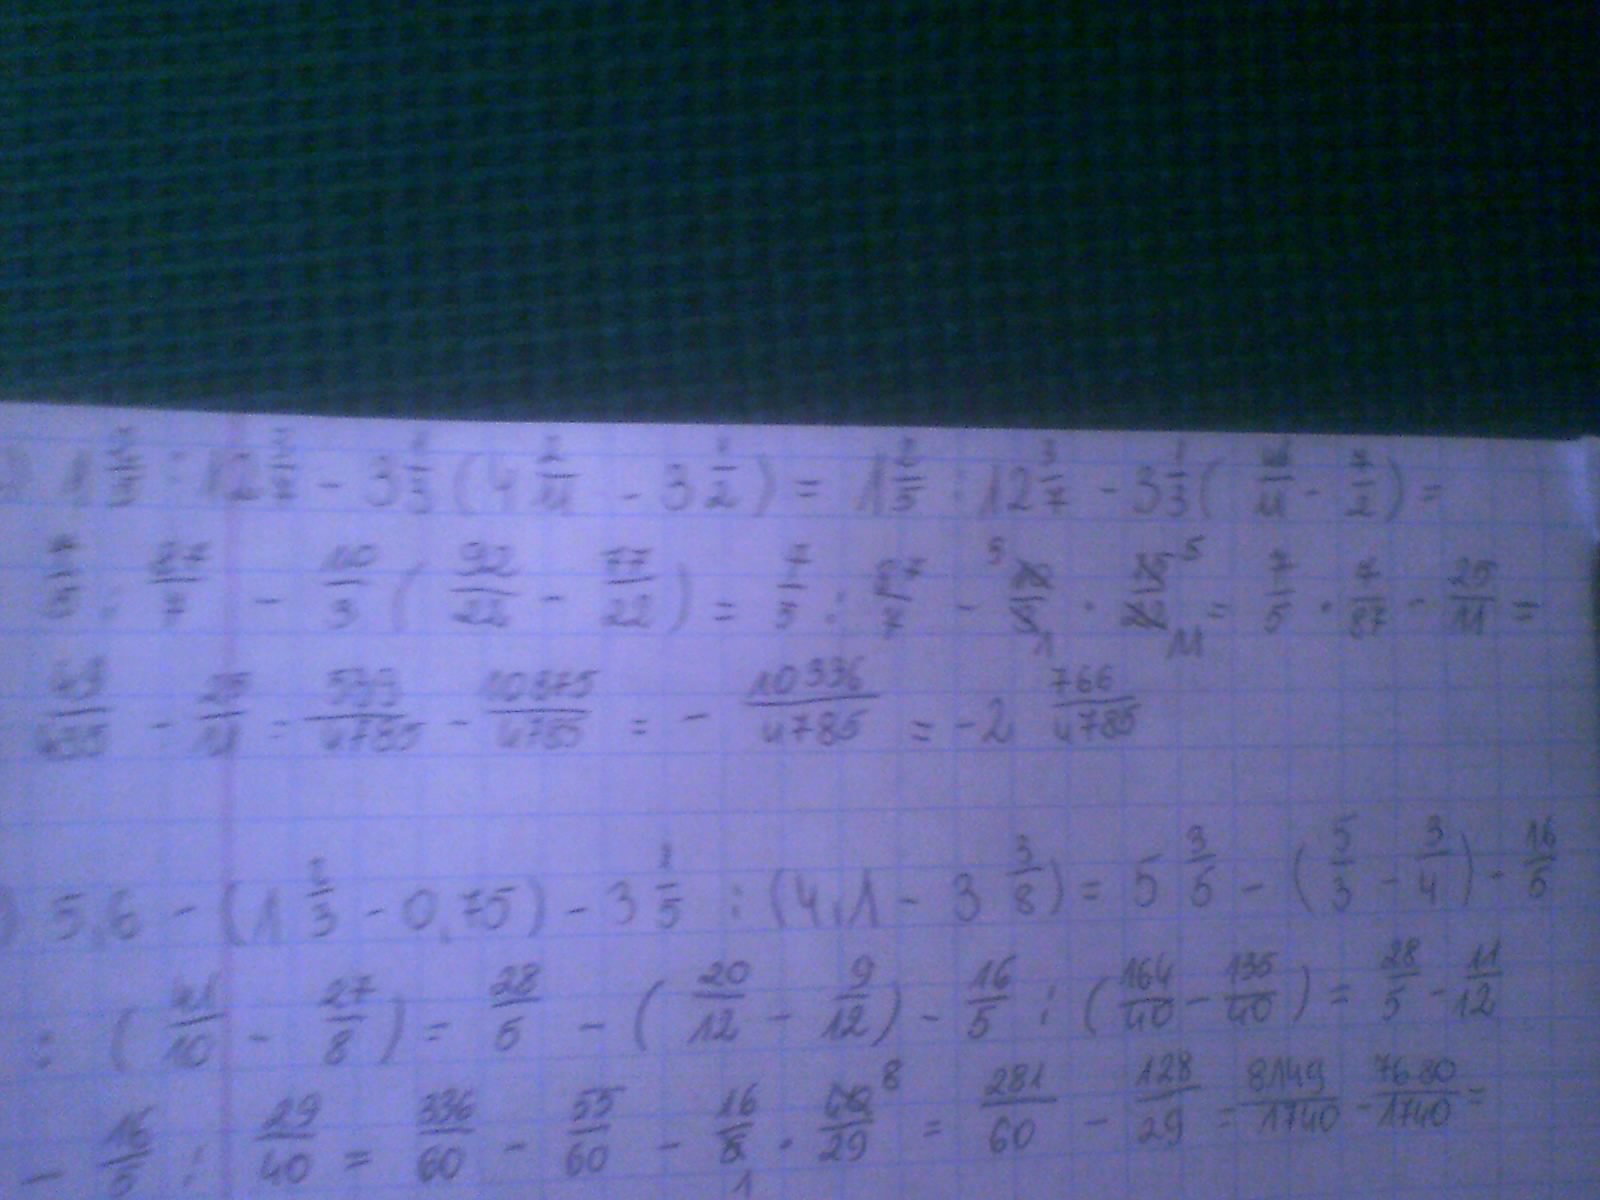 1 2/5 : 12 3/7 - 3 1/3 (4 2/11 - 3 1/2) = 1 2/5 : 12 3/7 - 3 1/3 (46/11 - 7/2) =
7/5 : 87/7 - 10/3 (92/22 - 77/22) = 7/5 : 87/7 - 10/3 · 15/22 = 7/5 · 7/87 - 25/11 =
49/435 - 25/11 = 539/4785 - 10875/4785 = - 10336/4785 = -2 766/4785
) 5,6 - (1 2/3 - 0,75) - 3 1/5 : (4,1 - 3 3/8) = 5 3/5 - (5/3 - 3/4) - 16/5
: (41/10 - 27/8) = 28/5 - (20/12 - 9/12) - 16/5 : (164/40 - 135/40) = 28/5 - 11/12
- 16/5 : 29/40 = 336/60 - 55/60 - 16/5 · 40/29 = 281/60 - 128/29 = 8149/1740 - 7680/1740 =